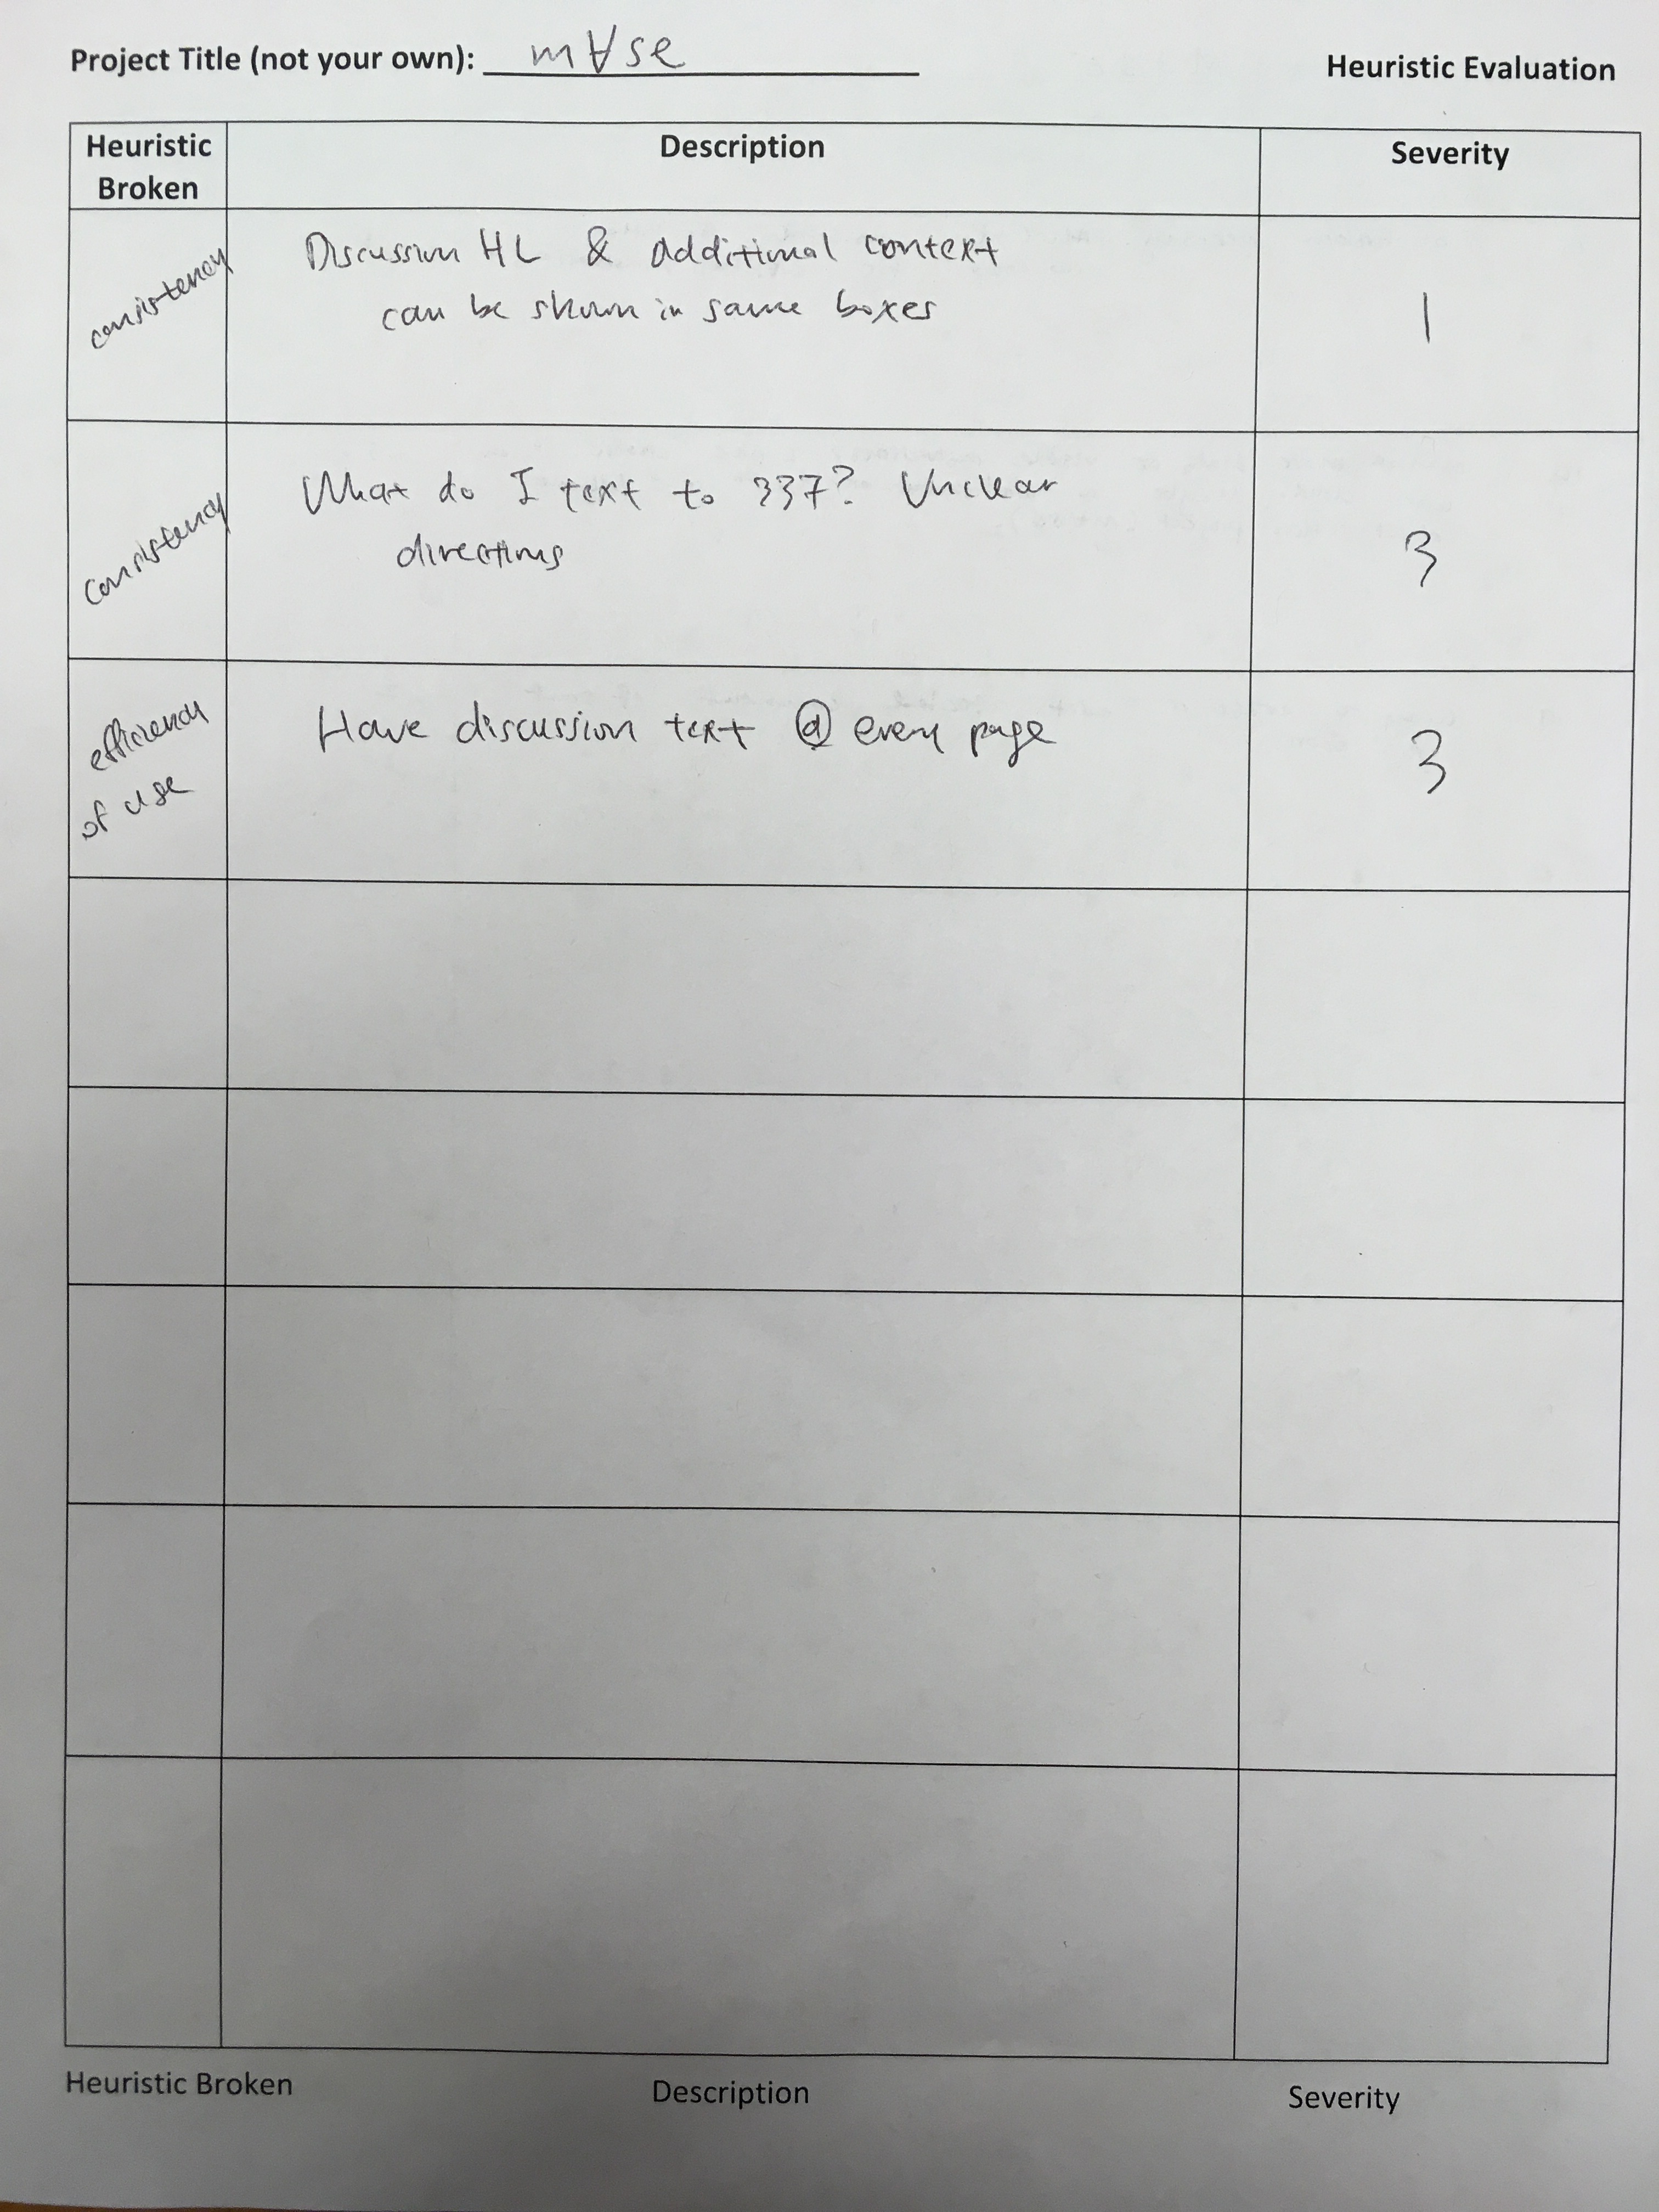 Project Title (not your own): m∀se
Heuristic Evaluation
Heuristic Broken
Description
Severity
consistency
Discussion HL & additional context
can be shown in same boxes
1
Consistency
What do I text to 337? Unclear
directions
3
efficiency
of use
Have discussion text @ every page
3
Heuristic Broken
Description
Severity